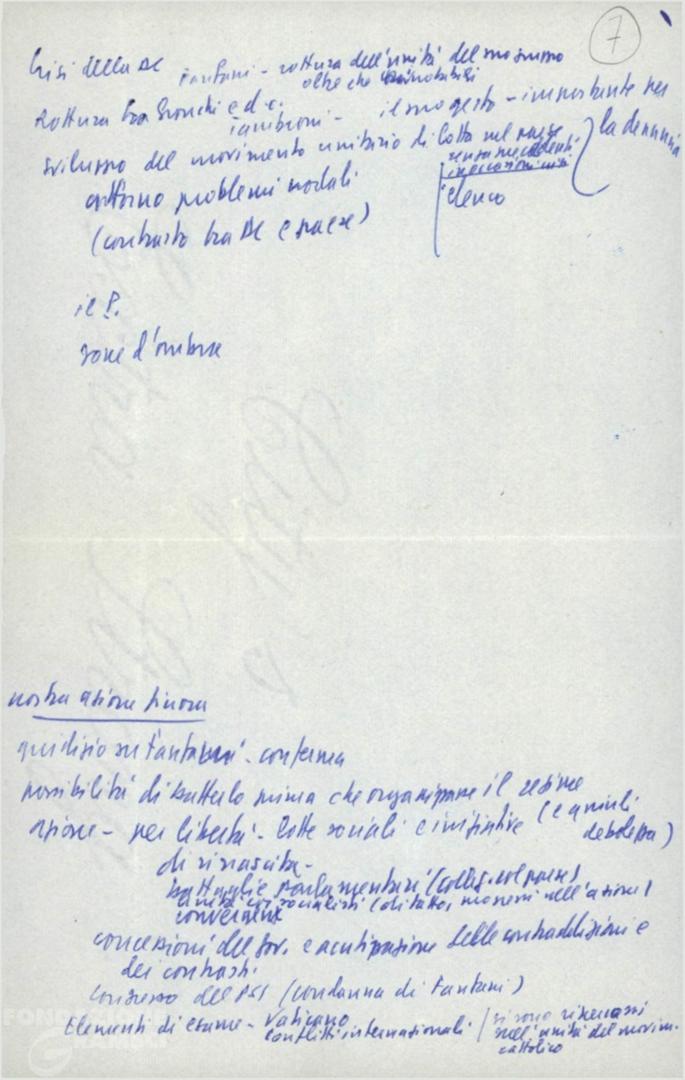 7
Crisi della DC Fanfani - rottura dell'unità del
oltre che
Rottura tra Gronchi e d.c. il suo gesto - importante per
la denuncia
sviluppo del movimento unitario di lotta nel paese
senza precedenti
attorno problemi nodali
elenco
(contrasto tra DC e paese)
il P.
zone d'ombra
nostra azione finora
giudizio su Fanfani - conferma
possibilità di batterlo prima che organizzasse il regime
azione - per libertà - lotte sociali e iniziative (e quindi
debolezza)
di rinascita -
battaglie parlamentari (colleg. col paese)
unità coi socialisti (di fatto, momenti nell'azione)
convergenze
concessioni del gov. e acutizzazione delle contraddizioni e
dei contrasti
Congresso del PSI (condanna di Fanfani)
Elementi di esame - Vaticano
conflitti internazionali
si sono
nell'unità del movim.
cattolico
FONDAZIONE
GRAMSCI